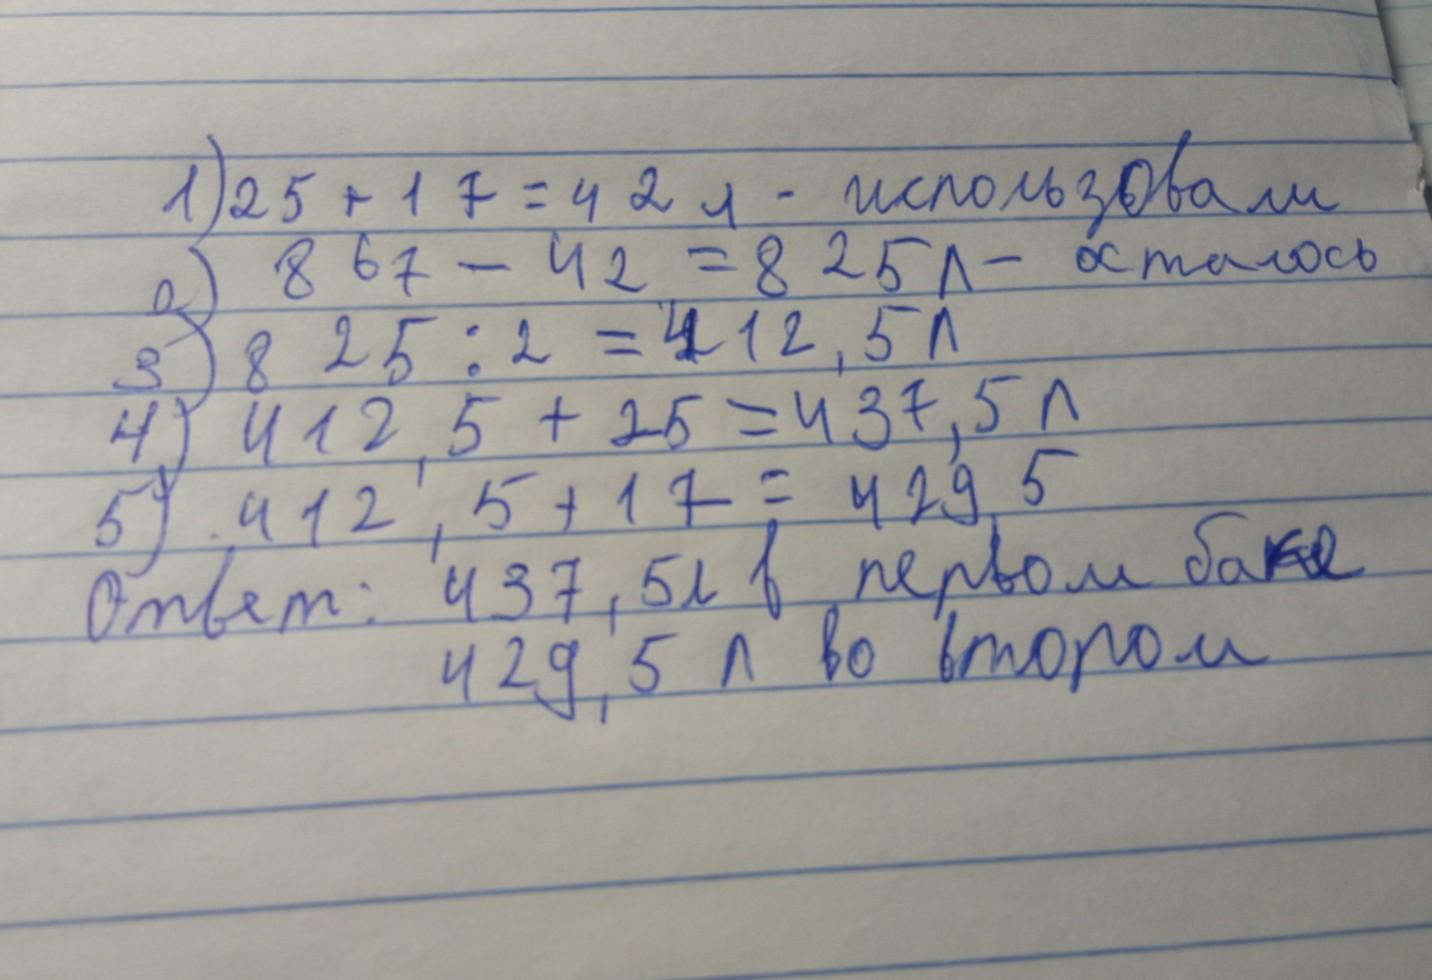 1) 25 + 17 = 42 л - использовали
2) 867 - 42 = 825 л - осталось
3) 825 : 2 = 412,5 л
4) 412,5 + 25 = 437,5 л
5) 412,5 + 17 = 429,5
Ответ: 437,5 л в первом баке
429,5 л во втором